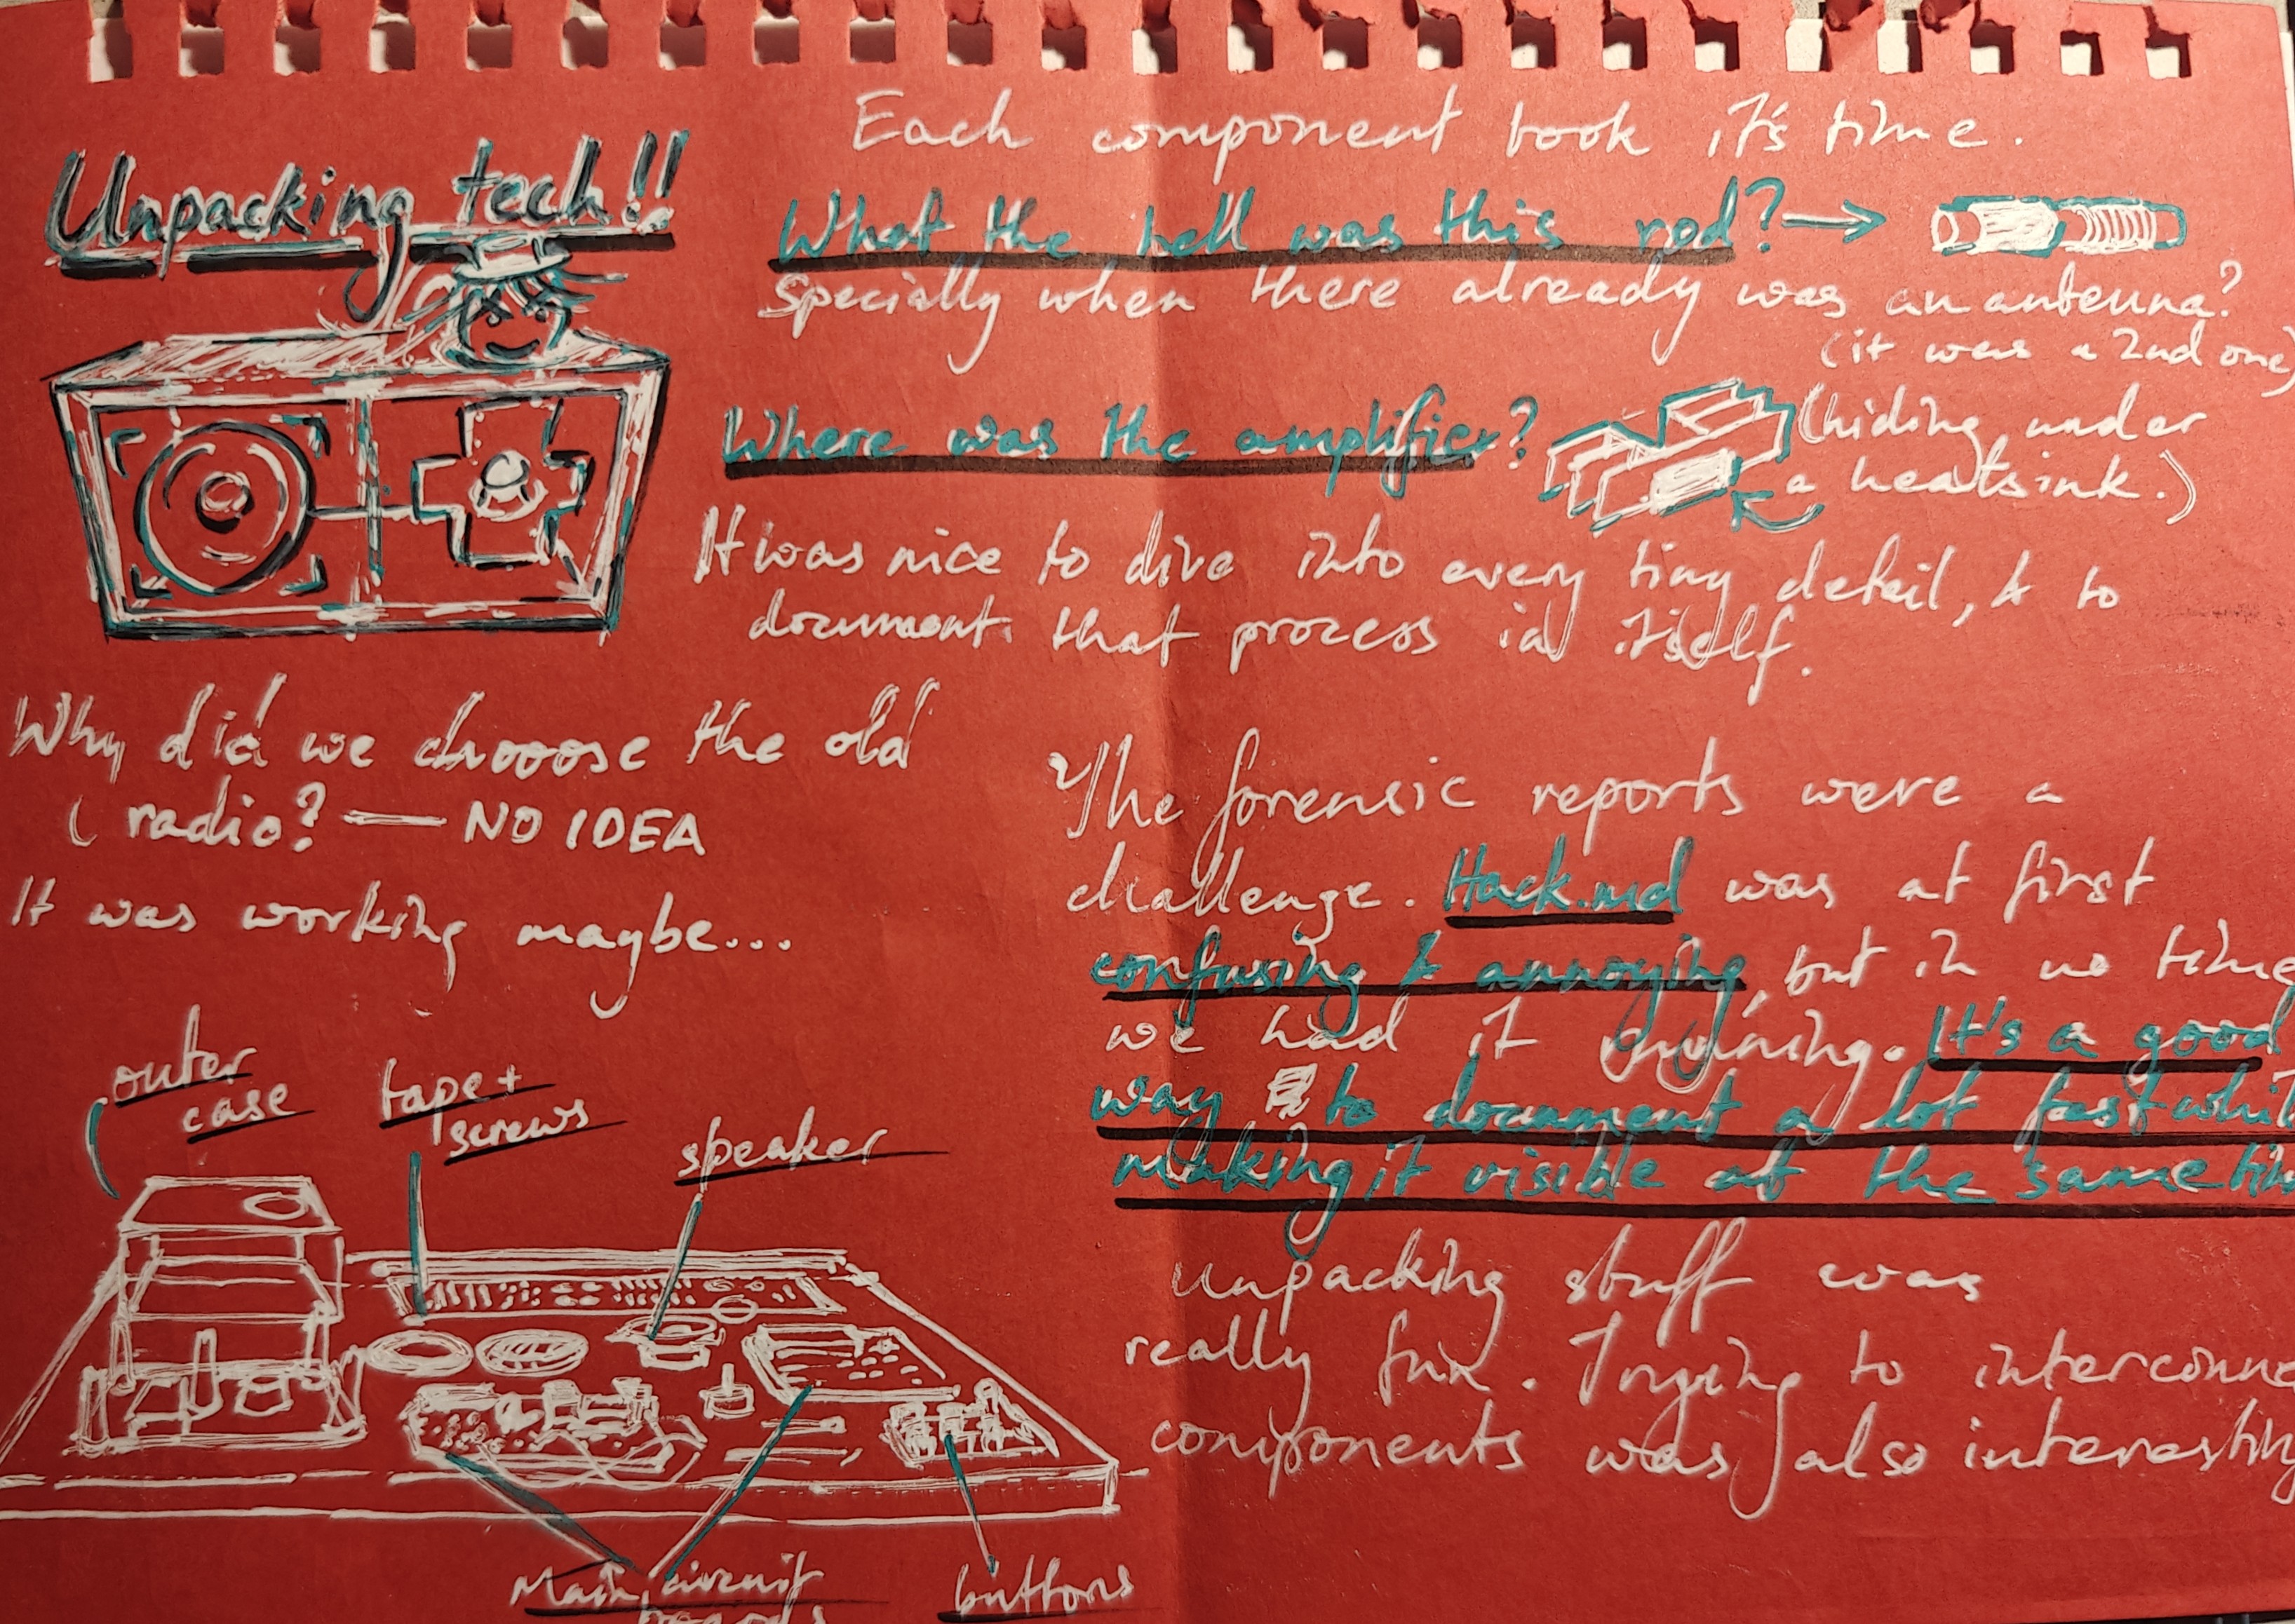 Unpacking tech!!
Each component took it's time.
What the hell was this rod?
specially when there already was an antenna?
(it was a 2nd one)
Where was the amplifier?
(hiding under
a heatsink.)
It was nice to dive into every tiny detail, & to
document that process in itself.
Why did we chooose the old
radio? — NO IDEA
It was working maybe...
The forensic reports were a
challenge. Hack.md was at first
confusing & annoying, but in no time
we had it running. It's a good
way to document a lot fast whil
making it visible at the same tim
Unpacking stuff was
really fun. Trying to interconne
components was also interesting
outer
case
tape +
screws
speaker
Main circuit
boards
buttons